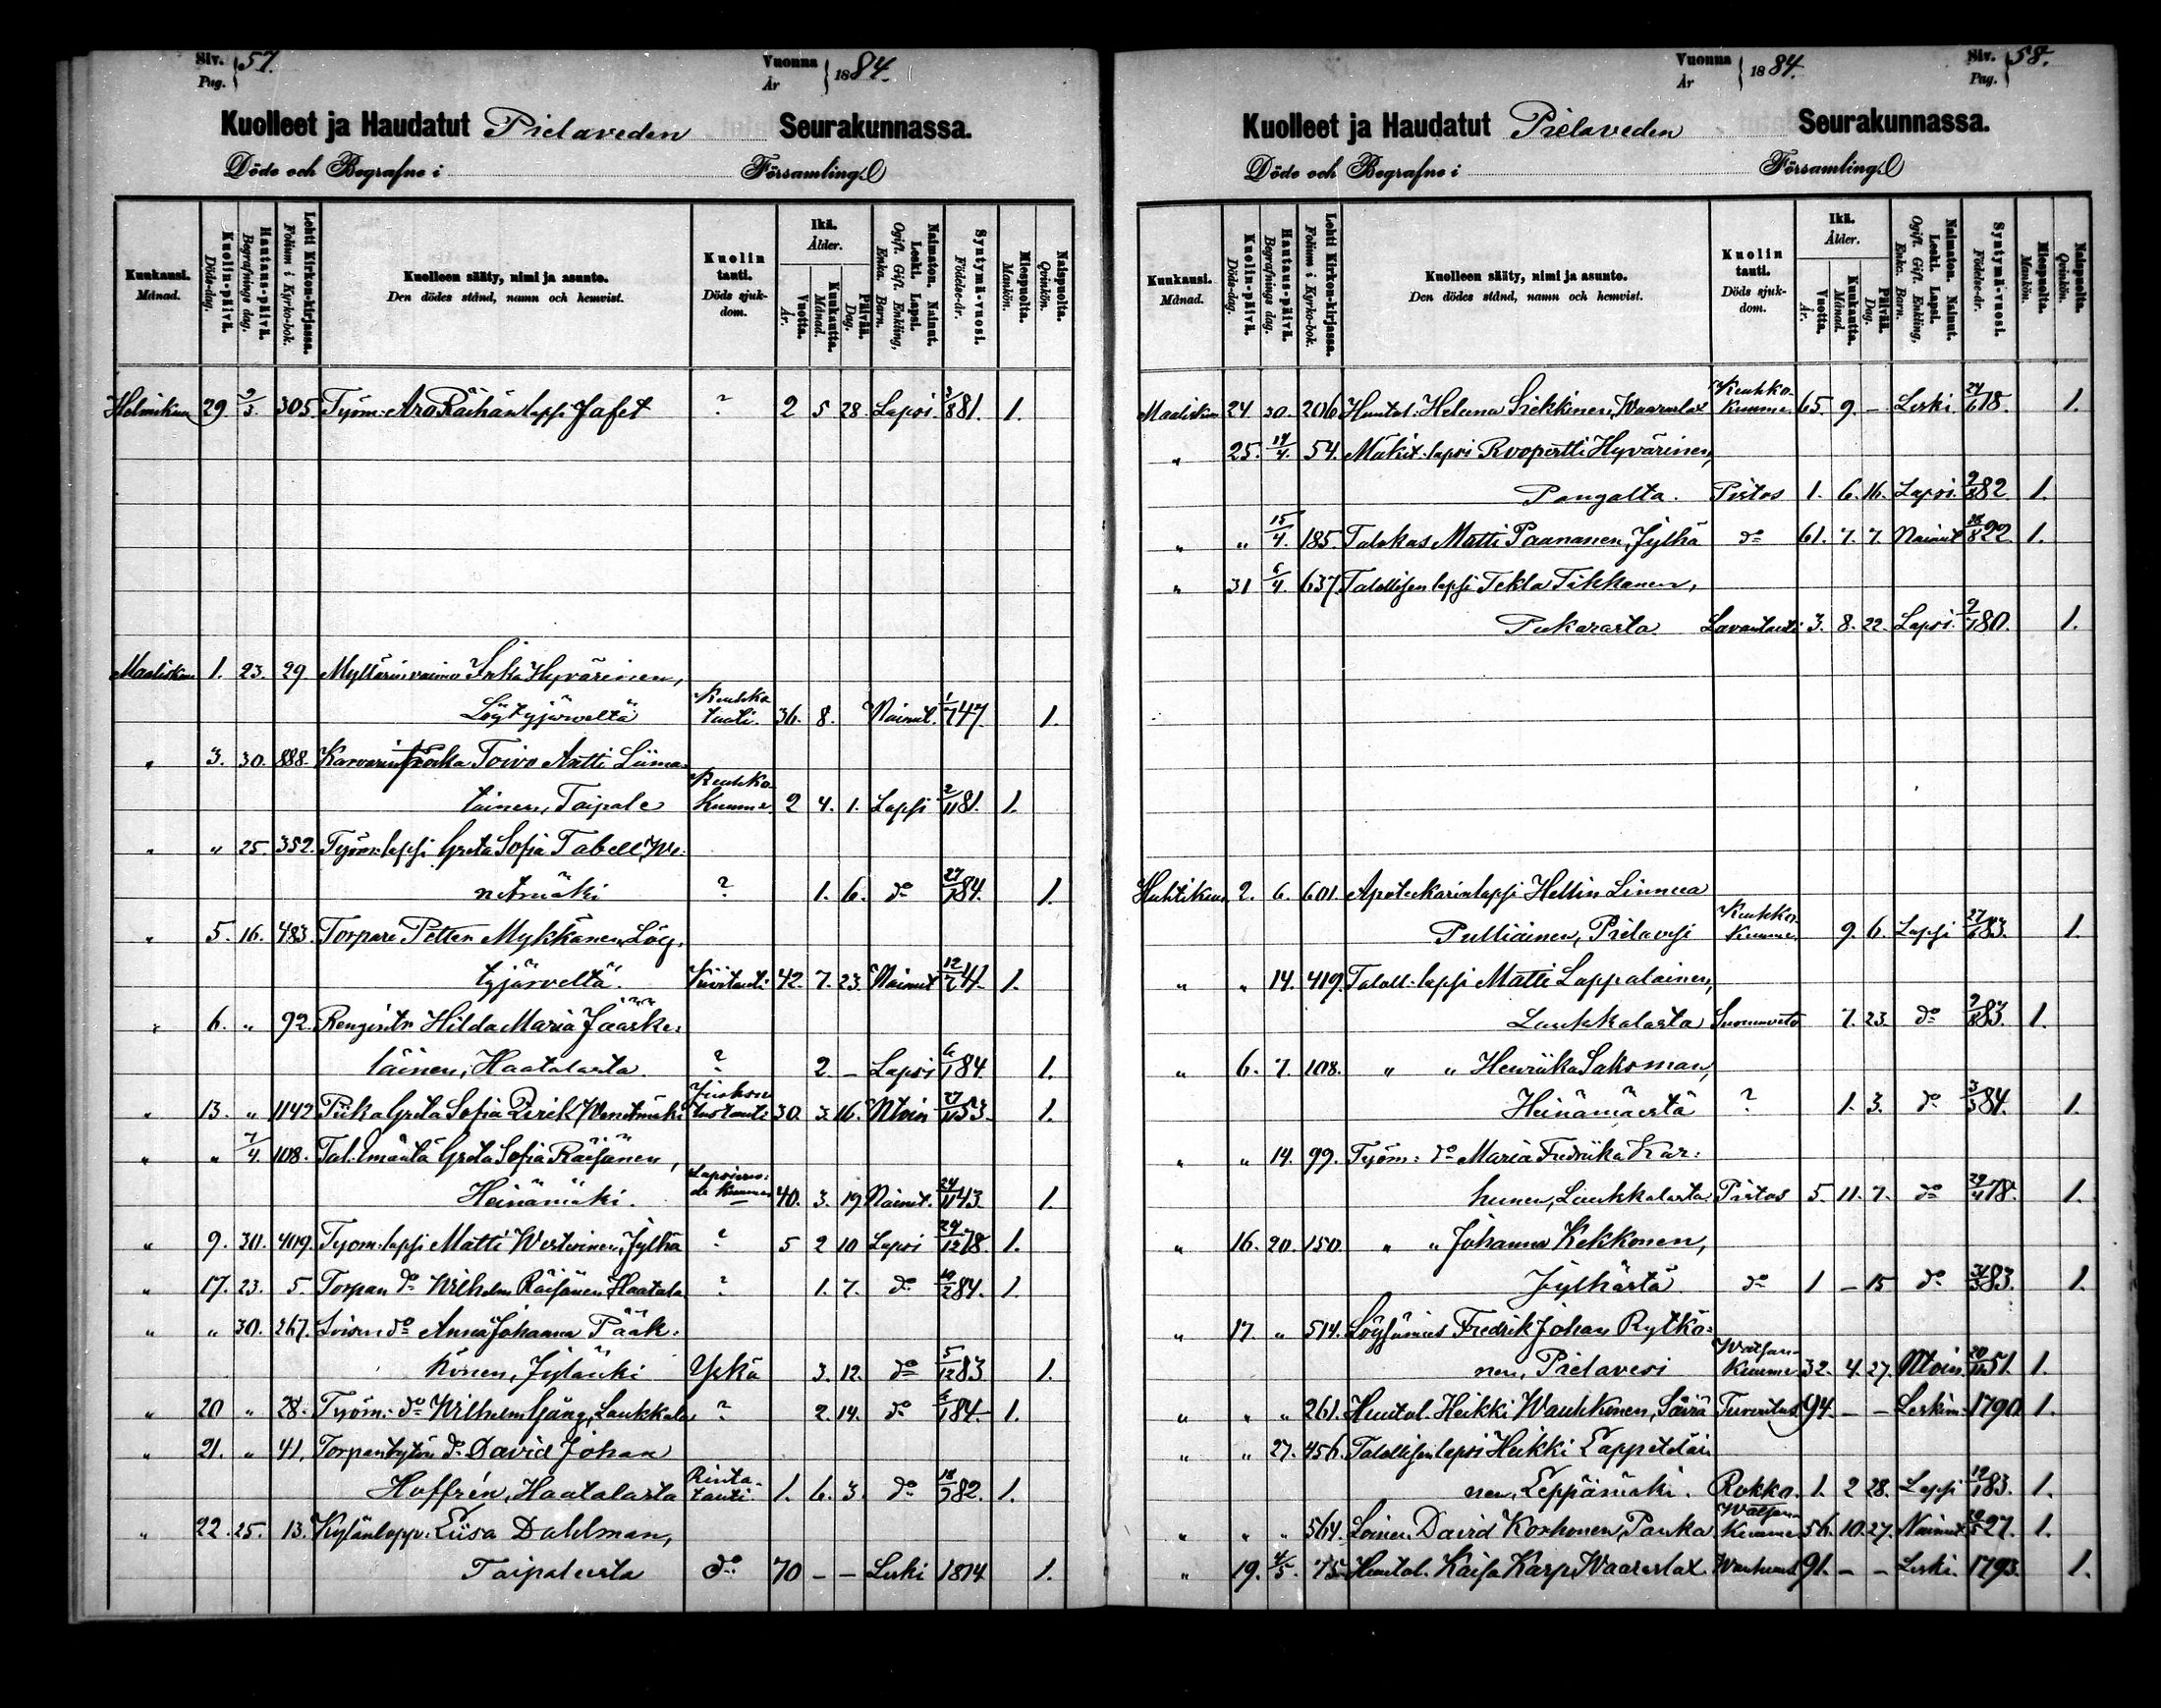 Siv. Pag. 57.
Vuonna År 1884.
Kuolleet ja Haudatut Pielaveden Seurakunnassa.
Döde och Begrafne i Församling.
Kuukausi. Månad.
Kuolin-päivä. Döds-dag.
Hautaus-päivä. Begrafnings dag.
Lehti Kirkon-kirjassa. Folium i Kyrko-bok.
Kuolleen sääty, nimi ja asunto. Den dödes stånd, namn och hemvist.
Kuolin tauti. Döds sjukdom.
Ikä. Ålder.
Vuotta. År.
Kuukautta. Månad.
Päivää. Dag.
Naimaton. Nainut. Leski. Lapsi. Ogift. Gift. Enkling, Enka. Barn.
Syntymä-vuosi. Födelse-år.
Miespuolta. Mankön.
Naispuolta. Qvinkön.
Helmikuu 29 2/3. 305. Työm: Aro Räihän lapsi Jafet ? 2 5 28. Lapsi 881. 1.
Maaliskuu 1. 23. 29 Myllärin vaimo Inka Hyvärinen,
Löytyjärveltä Keuhko tauti. 36. 8. Nainut. 1/7 47. 1.
" 3. 30. 888. Karvarin Toivo Antti Liima-
tainen, Taipale Keuhko Kuume 2 4. 1. Lapsi 2/11 81. 1.
" " 25. 352. Työm: lapsi Greta Sofia Tabell, We-
netmäki ? 1. 6. do 27/1 84. 1.
" 5. 16. 483. Torpare Petter Mykkänen, Löy-
tyjärveltä. 42. 7. 23. Nainut 12/7 41. 1.
" 6. " 92. Hilda Maria Jääske-
läinen, Haatalasta. ? 2. – Lapsi 6/1 84 1.
" 13. " 1142 Piika Greta Sofia Qvick, Wenetmäki Juoksutustauti 30. 3. 16. Ntoin 27/11 53. 1.
" " 7/4. 108. Tal. Emäntä Greta Sofia Räisänen,
Heinämäki. 40. 3. 19 Nainut. 24/11 43. 1.
" 9. 30. 409. Työm: lapsi Matti Westerinen, Jylhä ? 5 2 10 Lapsi 29/12 78. 1.
" 17. 23. 5. Torpan do Wilhelm Räisänen Haatala ? 1. 7. do 10/2 84. 1.
" " 30. 267. Loisen do Anna Johanna Pääk-
könen, Jylänki Yskä 3. 12. do 5/12 83 1.
" 20 " 28. Työm: do Wilhelm Gäng, Laukkala ? 2. 14. do 6/1 84 1.
" 21. " 41. do David Johan
Hoffrén, Haatalasta Rintatauti. 1. 6. 3. do 18/9 82. 1.
" 22. 25. 13. Kylänlapp. Liisa Dahlman,
Taipaleesta do 70 – – Leski 1814 1.
Vuonna År 1884.
Siv. Pag. 58.
Kuolleet ja Haudatut Pielaveden Seurakunnassa.
Döde och Begrafne i Församling.
Kuukausi. Månad.
Kuolin-päivä. Döds-dag.
Hautaus-päivä. Begrafnings dag.
Lehti Kirkon-kirjassa. Folium i Kyrko-bok.
Kuolleen sääty, nimi ja asunto. Den dödes stånd, namn och hemvist.
Kuolin tauti. Döds sjukdom.
Ikä. Ålder.
Vuotta. År.
Kuukautta. Månad.
Päivää. Dag.
Naimaton. Nainut. Leski. Lapsi. Ogift. Gift. Enkling, Enka. Barn.
Syntymä-vuosi. Födelse-år.
Miespuolta. Mankön.
Naispuolta. Qvinkön.
Maaliskuu 24. 30. 206 Huutol: Helena Siekkinen, Waaraslax Keuhko-Kuume 65. 9. – Leski 24/6 18. 1.
" 25. 14/4. 54. Mäkit. lapsi Roopertti Hyvärinen,
Pangalta. Pistos 1. 6. 16. Lapsi. 9/9 82 1.
" " 15/4. 185. Talokas Matti Paananen, Jylhä do 61. 7. 7. Nainut 18/8 22 1.
" 31 6/4. 637. Talollisen lapsi Tekla Tikkanen,
Pukarasta. Lavantauti 3. 8. 22. Lapsi. 9/7 80. 1.
Huhtikuu 2. 6. 601. Apoteekarin lapsi Hellin Linnea
Pulliainen, Pielavesi Keuhko-Kuume. 9. 6. Lapsi 27/6 83. 1.
" " 14. 419. Taloll. lapsi Matti Lappalainen,
Laukkalasta Suonenveto 7. 23. do 9/8 83. 1.
" 6. 7. 108. " " Henriika Saksman,
Heinämäestä ? 1. 3. do 3/3 84. 1.
" " 14. 99. Työm: do Maria Fredriika Kar-
hunen, Laukkalasta Pistos 5. 11. 7. do 29/4 78. 1.
" 16. 20. 150. " " Johanna Kekkonen,
Jylhästä do 1 – 15 do 31/3 83. 1.
" 17. " 514. Löysämies Fredrik Johan Rytkö-
nen, Pielavesi Watsan-Kuume 32. 4. 27. Ntoin. 20/11 51. 1.
" " " 261. Huutol. Heikki Wauhkonen, Säviä Turvotus 94. – – Leskim. 1790 1.
" " 27. 456. Talollisen lapsi Heikki Lappeteläi-
nen, Leppämäki. Rokko. 1. 2 28. Lapsi 19/1 83. 1.
" " " 564. Loinen David Korhonen, Panka Watsan-Kuume 56. 10. 27. Nainut 20/5 27. 1.
" 19. 4/5. 75. Huutol. Kaisa Karp, Waaraslax. Wanhuus 91. – – Leski. 1793. 1.